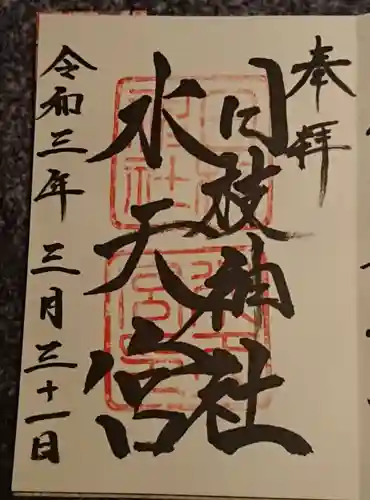 奉拝
日枝神社
水天宮
令和三年三月三十一日